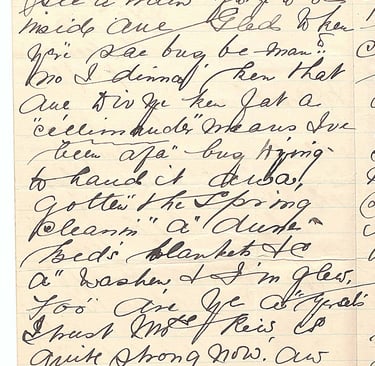 inside ane Glad to ken
ye're sae bug be man?
no I dinna ken that
ane Div ye ken fat a
"cellimander" means I've
been afa" bug trying
to haud it awa,
gotten the Spring
cleanin" a" dune
beds blankets &c
a" washen, & I'm glad,
foo are ye a" yersels
I trust Mrs Reid is
quite strong now. aw